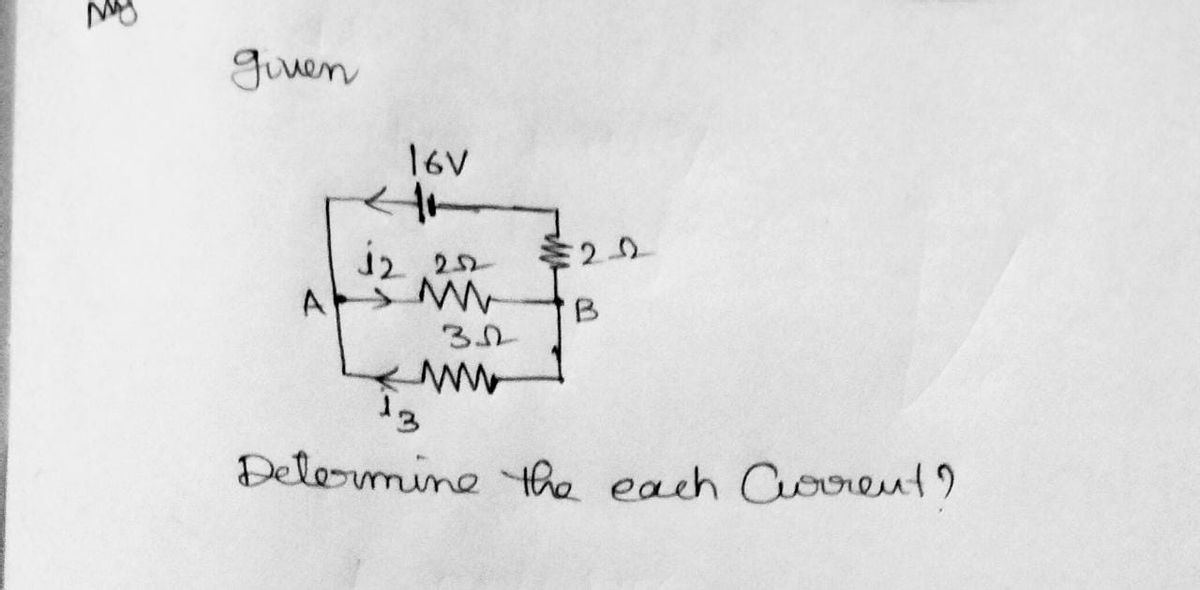 given
16V
i2 2Ω
2Ω
A
B
3Ω
i3
Determine the each Current?